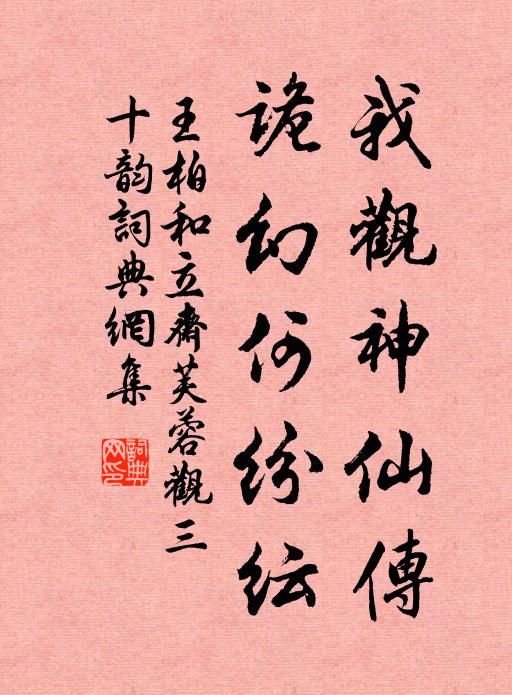 我觀神仙傳
詭幻何紛紜
王柏和立齋芙蓉觀三
十韵詞典網集
詞典
网印